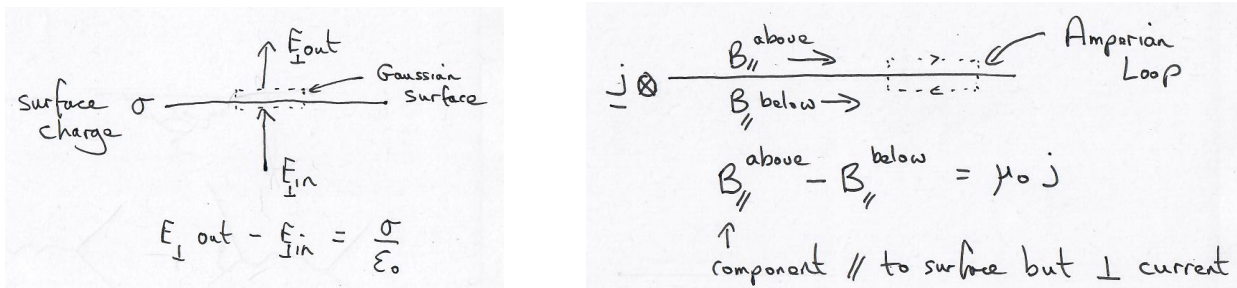 E⊥out
Gaussian
surface
surface σ
charge
E⊥in
E⊥ out - E⊥in = σ/ε₀
B∥ above →
Amperian
Loop
j ⊗
B∥ below →
B∥ above - B∥ below = μ₀ j
↑
component ∥ to surface but ⊥ current